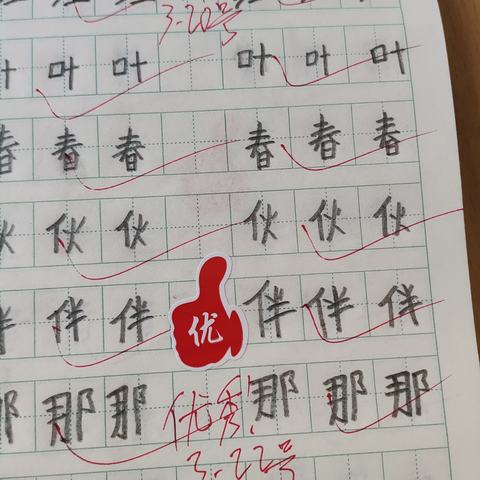 3.20号
叶 叶 叶 叶 叶 叶
春 春 春 春 春 春
伙 伙 伙 伙 伙 伙
伴 伴 伴 优 伴 伴 伴
那 那 那 优秀! 那 那 那
3.22号